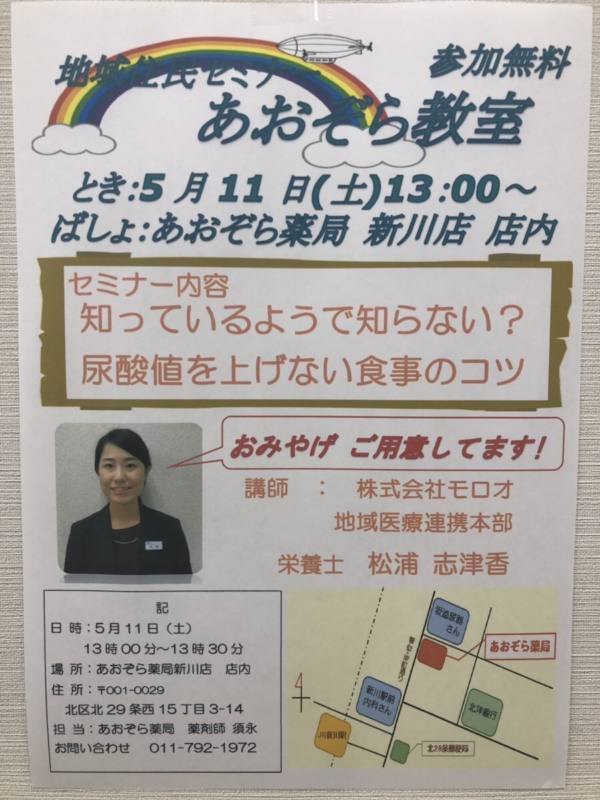 地域住民セミナー
参加無料
あおぞら教室
とき:5月11日(土)13:00～
ばしょ:あおぞら薬局 新川店 店内
セミナー内容
知っているようで知らない？
尿酸値を上げない食事のコツ
おみやげ ご用意してます!
講師 ： 株式会社モロオ
地域医療連携本部
栄養士 松浦 志津香
記
日 時：5月11日（土）
13時00分～13時30分
場 所：あおぞら薬局新川店 店内
住 所：〒001-0029
北区北29条西15丁目3-14
担 当：あおぞら薬局 薬剤師 須永
お問い合わせ 011-792-1972
さん
あおぞら薬局
新川駅前
内科さん
北洋銀行
JR新川駅
北28条郵便局